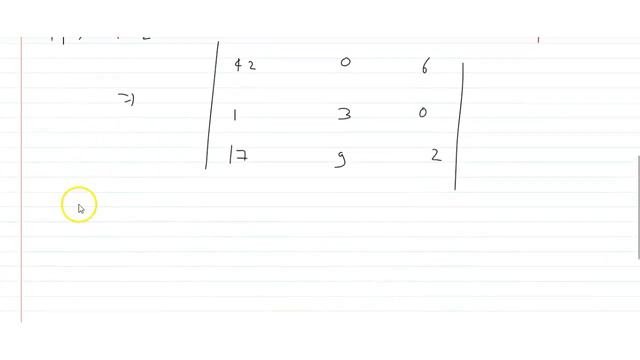 42 0 6
=> 1 3 0
17 9 2